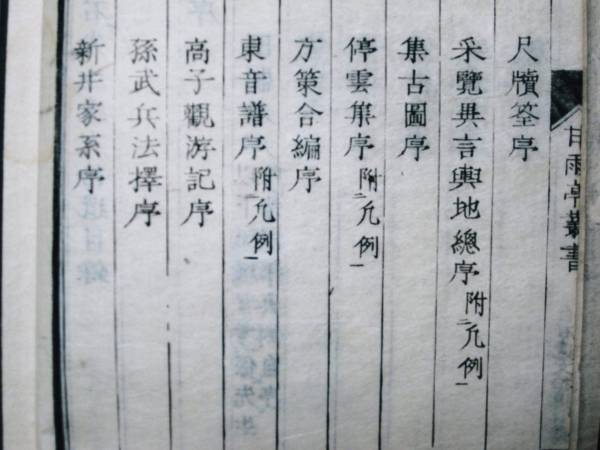 甘雨亭叢書
尺牘筌序
采覽異言輿地總序附二凡例一
集古圖序
停雲集序附二凡例一
方策合編序
東音譜序附二凡例一
高子觀游記序
孫武兵法擇序
新井家系序